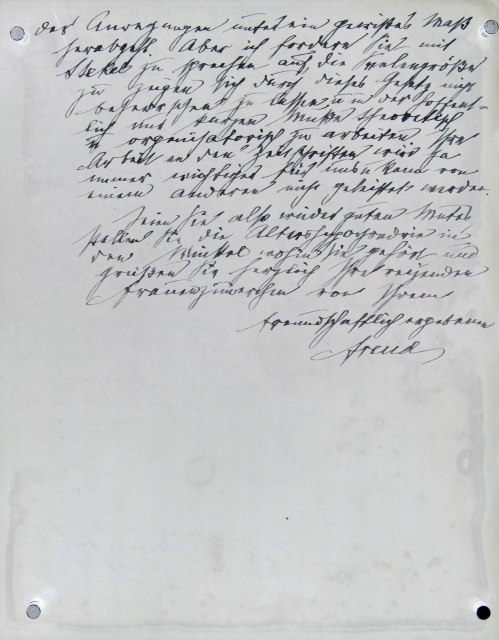 der Anregungen unter ein gewisses Maß
herabgeht. Aber ich fordere Sie mit
Stekel zu sprechen auf, die Seelengröße
zu zeigen sich durch dieses Gesetz nicht
beherrschen zu lassen u in der hoffent-
lich nur kurzen Muße theoretisch
u organisatorisch zu arbeiten. Ihre
Arbeit an den Zeitschriften wird ja
immer wichtiger für uns u kann von
einem anderen nicht geleistet werden.
Seien Sie also wieder guten Mutes
stellen Sie die Altershypochondrie in
den Winkel wohin sie gehört und
grüßen Sie herzlich Ihre reizenden
Frauenzimmerchen von Ihrem
freundschaftlich ergebenen
Freud